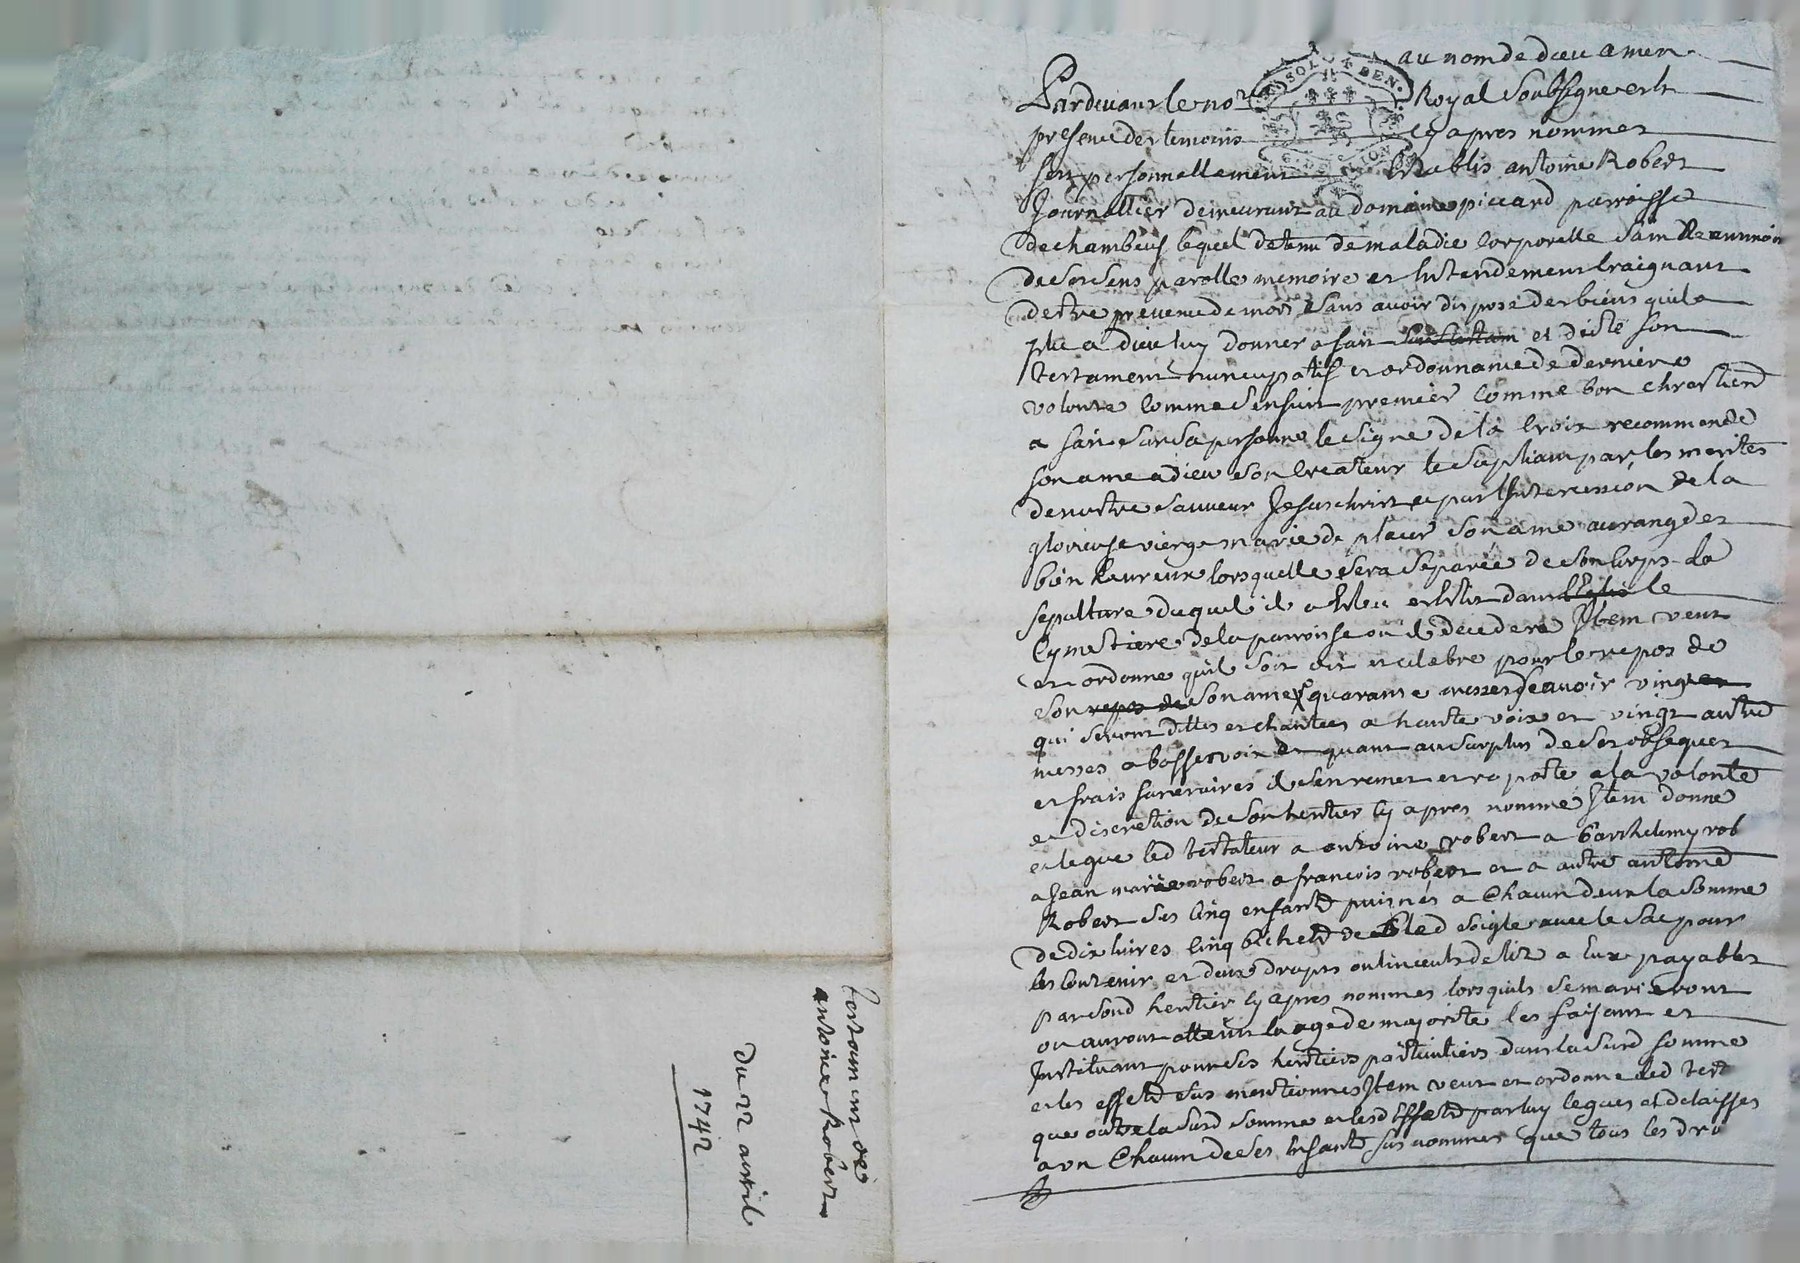 au nom de dieu amen
Pardevant le no.re Royal Soubsigne et en
presence des temoins cy apres nommes
fut personnellement Etablis antoine Robert
Journallier demeurant au domaine piccard parroisse
de chambeuf lequel detenu de maladie Corporelle sain neanmoin
de ses sens parolle memoire et Entendement Craignant
d'estre prevenu de mort Sans avoir disposé des biens quil a
plu a dieu luy donner a fait et dicté son
testament nuncupatif et ordonnance de derniere
volonte Comme S'ensuit premier Comme bon chrestiend
a fait sur sa personne le Signe de la Croix recommende
son ame a dieu Son Createur le Supliant par les merites
de nostre Sauveur Jesus christ et par l'Intercession de la
glorieuse vierge marie de placer Son ame au rang des
bien heureux lorsquelle Sera Separée de Son Corps la
sepulture duquel il a Eslu et Eslit dans l'Eglise le
Cymetiere de la parroisse ou il decedera Jtem veut
et ordonne quil Soit dit et celebre pour le repos de
Son repos de Son ame quarante messes Scavoir vingt
qui Seront dittes et chantees a haute voix et vingt autre
messes a basse voix Et quant au Surplus de Ses obseques
et frais funeraires il S'en remet et raporte a la volonte
et discretion de Son heritier Cy apres nommé Jtem donne
et legue led testateur a antoine robert a barthelemy rob
a Jean marie robert a francois robert et a autre antoine
Robert Ses Cinq enfantd puisnés a Chacun deux la Somme
de dix livres Cinq bichetd de Bled Soigle avec le Sac pour
les Contenir et deux draps ou linceuls de lit a Eux payables
par Sond heritier Cy apres nommes lorsquils Se marieront
ou auront atteint la age de majorité les faisant et
Instituant pour Ses heritiers particuliers dans la Susd Somme
et les effetd Sus mentionnes Jtem veut et ordonne led test
que outre la Susd Somme et lesd Effetd par luy legues et delaisses
a un Chacun de Ses Enfantd Sus nommes que tous les dro
testament de
antoine Robert
Du 22 avril
1742